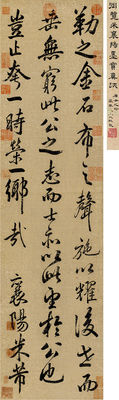 米襄陽墨寶真
勒之金石布之聲施以耀後世而
垂無窮此公之志而士亦以此望於公也
豈止夸一時榮一鄉哉 襄陽米芾